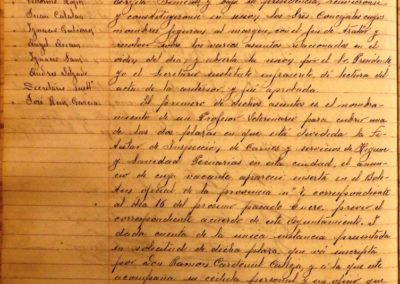 Ygnacio Gutierrez
Angel Serrano
Ygnacio Sanz
Andrés Delgado
Secretario Sustº
José Ruiz García
bajo su presidencia, reunieronse
y constituyeronse en sesión los Tres Concejales cuyos
nombres figuran al margen, con el fin de tratar y
resolver sobre los varios asuntos relacionados en el
orden del dia y abierta la sesión por el Sr. Presidente
Yo el Secretario sustituto infrascrito, di lectura del
acta de la anterior, y fué aprobada.
El primero de dichos asuntos es el nombra-
miento de un Profesor Veterinario para cubrir una
de las dos plazas en que está dividida la Ti-
tular de Inspección de Carnes y servicios de Higiene
y Sanidad Pecuarias en esta ciudad, el anun-
cio de cuya vacante apareció inserto en el Bole-
tin oficial de la provincia nº 7 correspondiente
al dia 16 del proximo pasado Enero, previo el
correspondiente acuerdo de este Ayuntamiento. Y
dada cuenta de la unica instancia presentada
en solicitud de dicha plaza, que vá suscripta
por Don Ramon Cardenal Calleja, y á la que este
acompaña su cédula personal y un oficio que